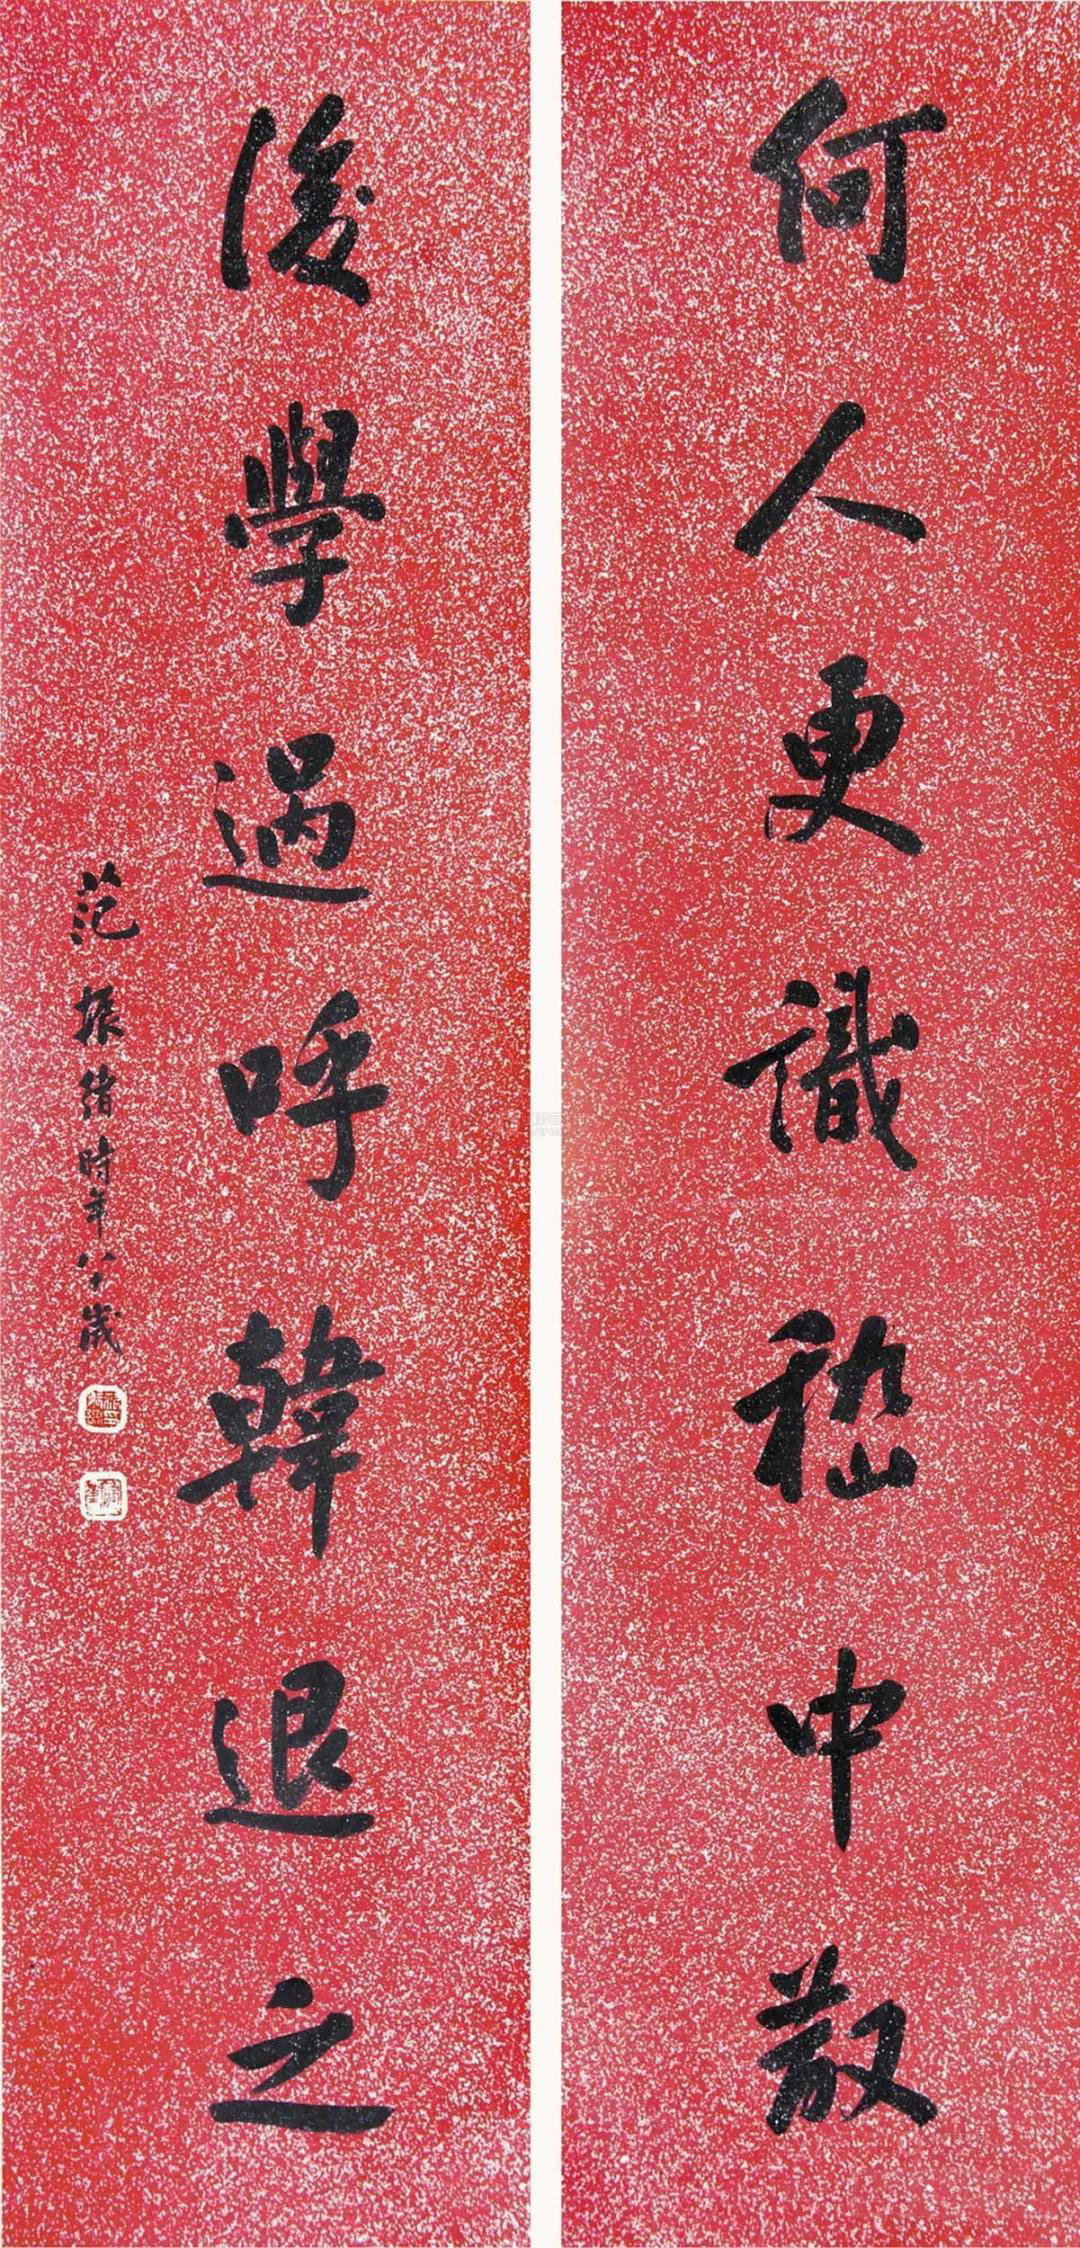 何人更識嵇中散
後學過呼韓退之
范振緒時年八十歲